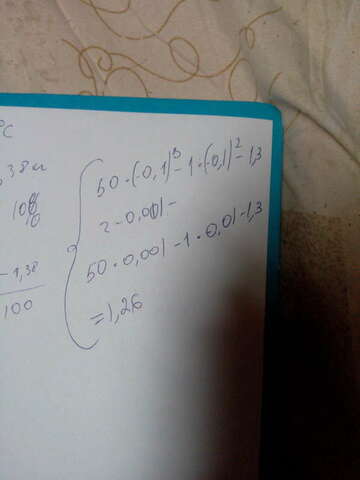 °C
,38 м
100%
-1,38
100
50·(-0,1)³-1·(-0,1)²-1,3
2-0,001-
50·0,001-1·0,01-1,3
=1,26